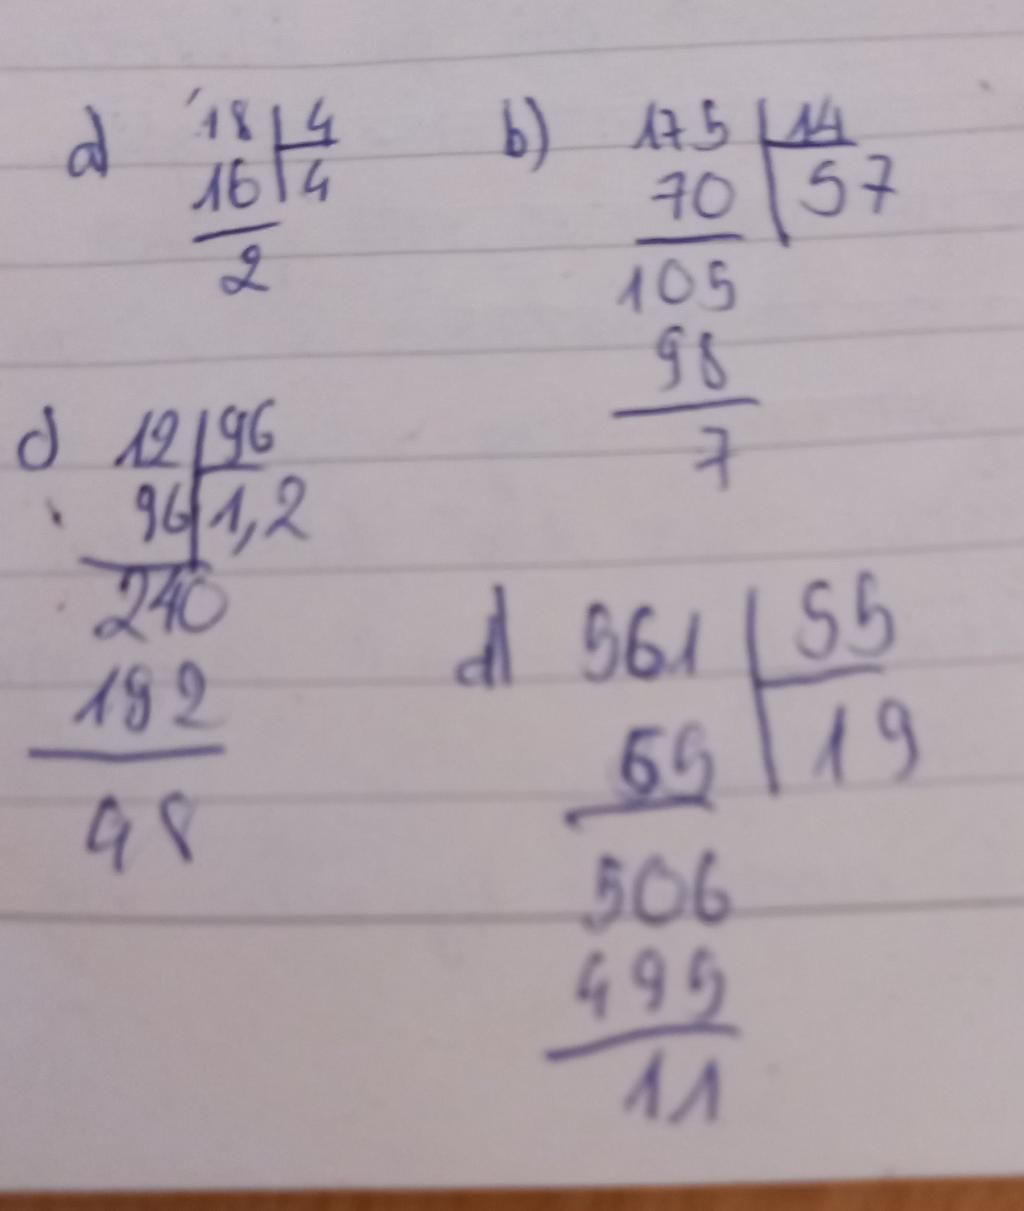 a) 18 4
16 4
2
b) 175 14
70 57
105
98
7
c) 12 96
96 1,2
240
192
48
d) 561 55
55 19
506
495
11